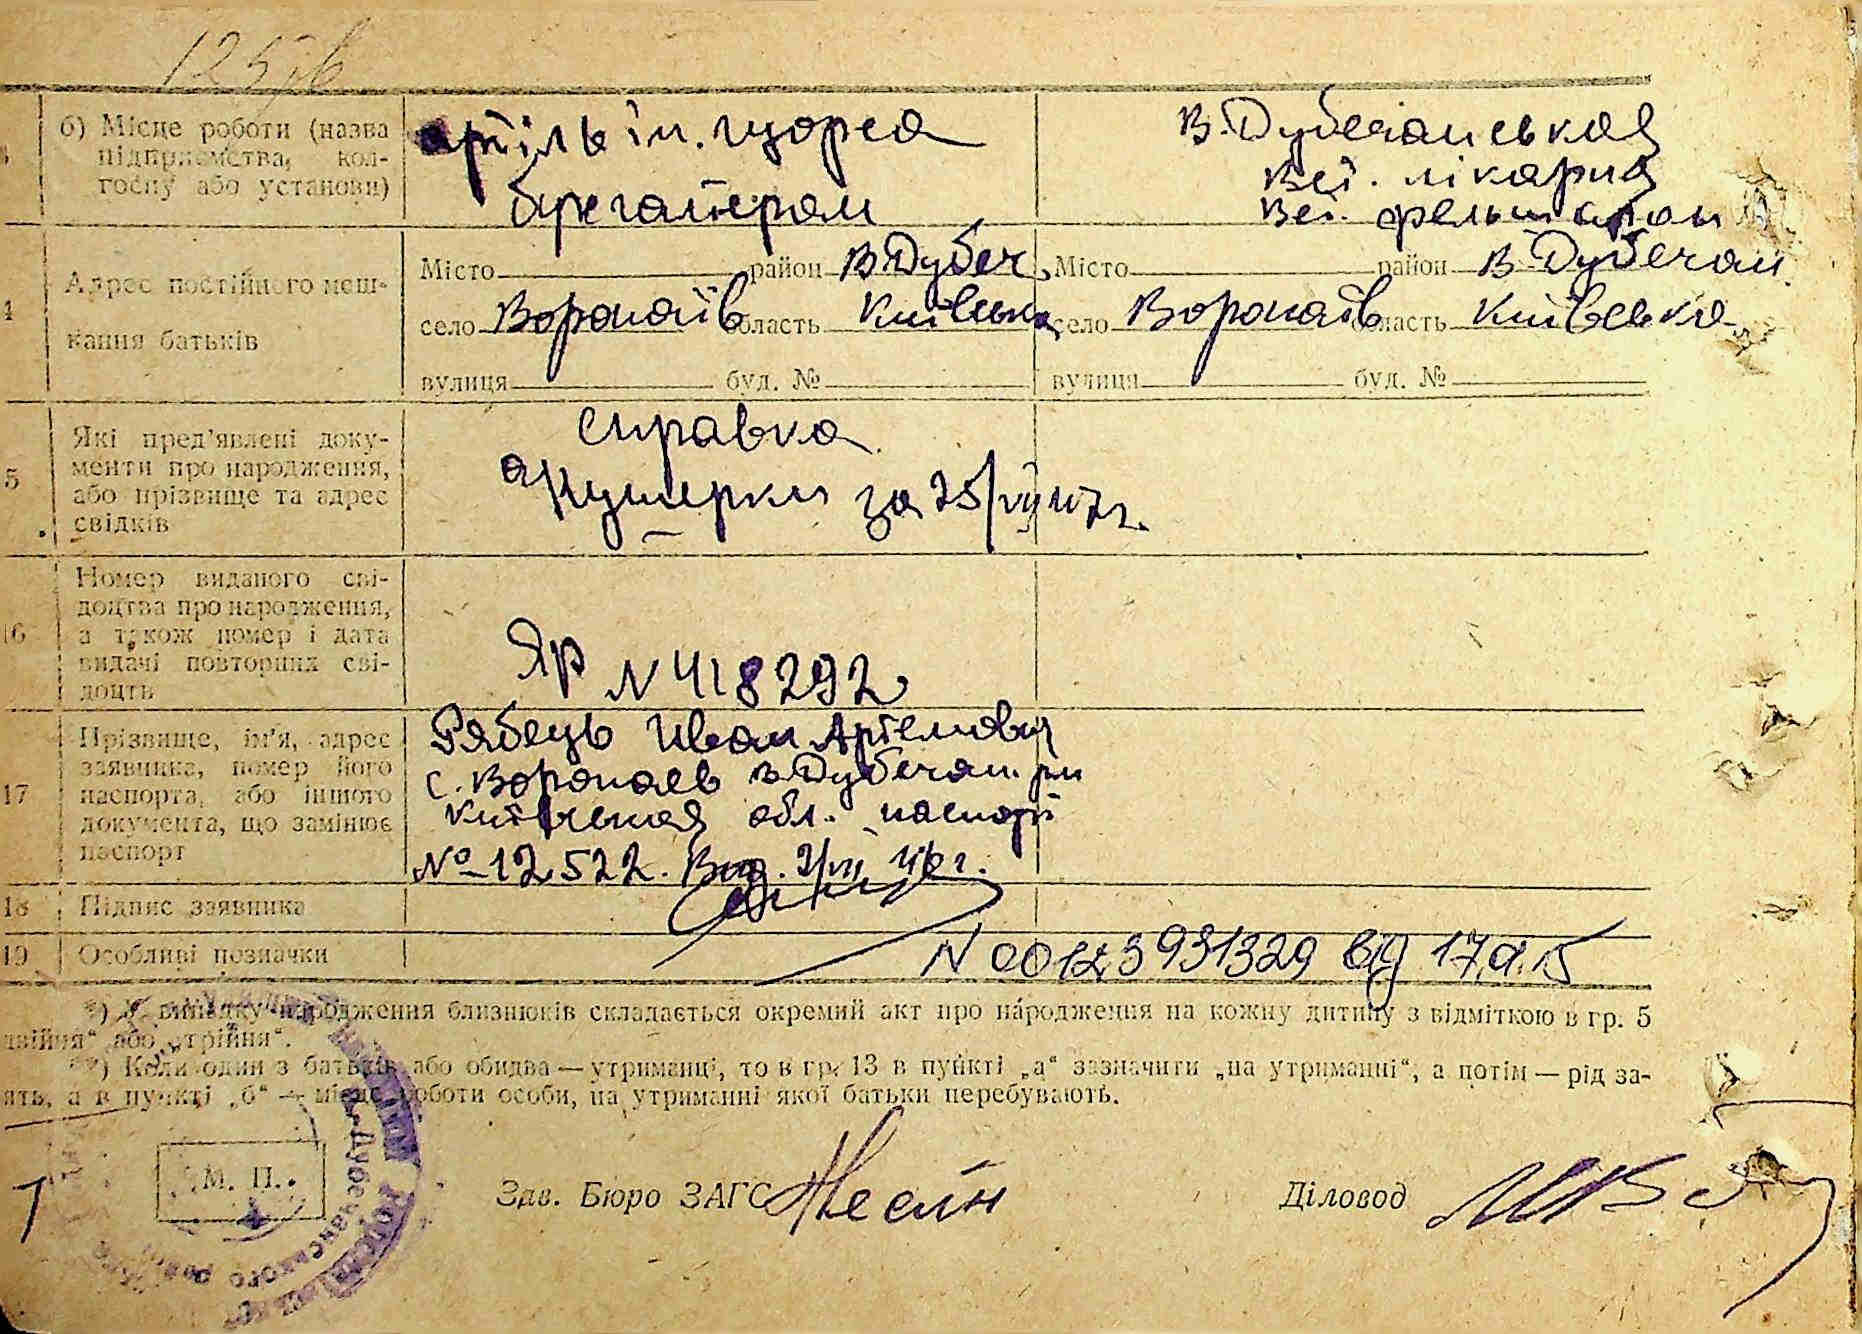 б) Місце роботи (назва підприємства, колгоспу або установи)
артіль ім. Щорса
В. Дубечанськая
Вет. лікарня
бухгалтером
Вет. фельшером
4 Адрес постійного мешкання батьків
Місто район В Дубеч. Місто район В-Дубечан.
село Воропаїв область Київська село Воропаїв область Київська
вулиця буд. № вулиця буд. №
5 Які пред'явлені документи про народження, або прізвище та адрес свідків
справка
акушерки за 25/VII 47 г.
16 Номер виданого свідоцтва про народження, а також номер і дата видачі повторних свідоцтв
ЯР N 418292
17 Прізвище, ім'я, адрес заявника, номер його паспорта, або іншого документа, що замінює паспорт
Рябець Иван Артемович
с. Воропаев В-Дубечан. р-н
Киевская обл. паспорт
№ 12522. Выд. 46 г.
18 Підпис заявника
19 Особливі позначки
N 00123931329 від
*) У випадку народження близнюків складається окремий акт про народження на кожну дитину з відміткою в гр. 5
двійня" або „трійня".
**) Коли один з батьків або обидва — утриманці, то в гр. 13 в пункті „а" зазначити „на утриманні", а потім — рід за-
нять, а в пункті „б" — місце роботи особи, на утриманні якої батьки перебувають.
М. П.
Зав. Бюро ЗАГС
Діловод